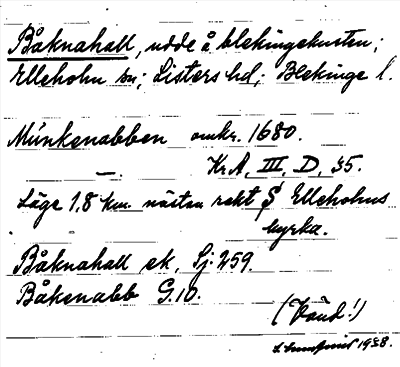 Båknahall, udde å blekingekusten;
Elleholm sn; Listers hd; Blekinge l.
Munkenabben omkr. 1680.
— . Kr.A, III, D, 35.
Läge 1,8 km. nästan rakt S Elleholms
kyrka.
Båknahall ek, Sj 259.
Båkenabb G.10.
(Vänd!)
1938.